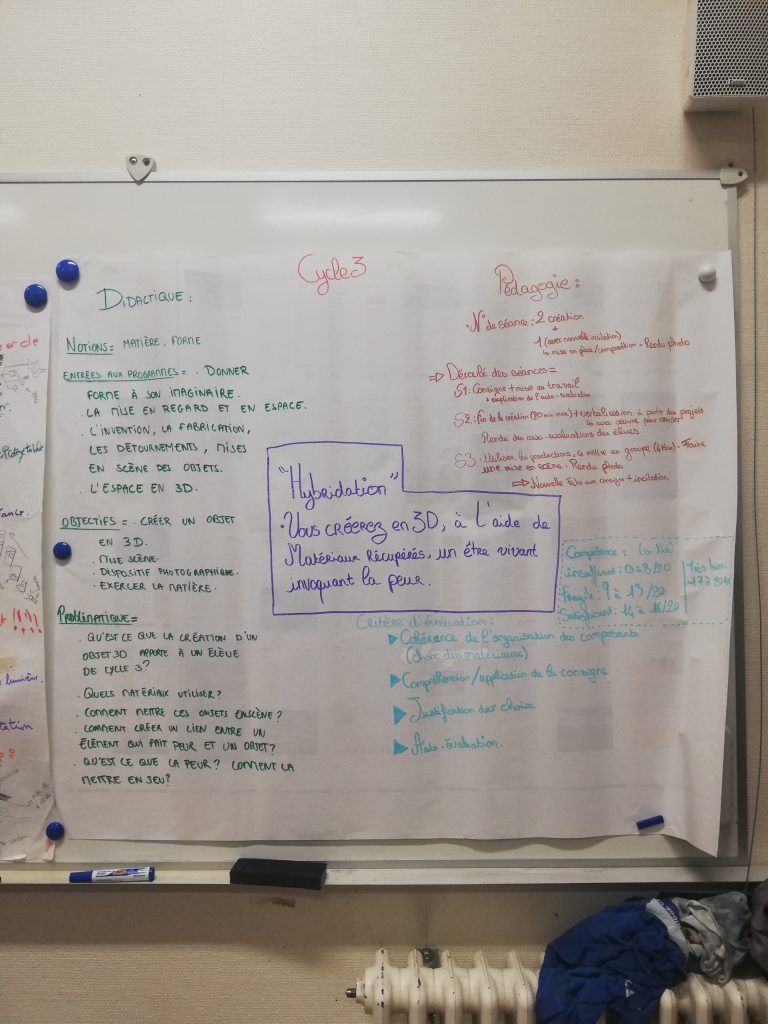 Cycle 3
DIDACTIQUE :
NOTIONS = MATIÈRE, FORME
ENTRÉES AUX PROGRAMMES = . DONNER
FORME À SON IMAGINAIRE.
. LA MISE EN REGARD ET EN ESPACE.
. L'INVENTION, LA FABRICATION,
LES DÉTOURNEMENTS, MISES
EN SCÈNE DES OBJETS.
. L'ESPACE EN 3D.
OBJECTIFS = . CRÉER UN OBJET
EN 3D.
. MISE SCÈNE.
. DISPOSITIF PHOTOGRAPHIQUE.
. EXERCER LA MATIÈRE.
PROBLÉMATIQUE =
. QU'EST CE QUE LA CRÉATION D'UN
OBJET 3D APPORTE À UN ÉLÈVE
DE CYCLE 3?
. QUELS MATÉRIAUX UTILISER?
. COMMENT METTRE CES OBJETS EN SCÈNE?
. COMMENT CRÉER UN LIEN ENTRE UN
ÉLÉMENT QUI FAIT PEUR ET UN OBJET?
. QU'EST CE QUE LA PEUR? COMMENT LA
METTRE EN JEU?
"Hybridation"
. Vous créerez en 3D, à l'aide de
Matériaux récupérés, un être vivant
invoquant la peur.
Pédagogie :
. N° de séance : 2 création
+
1 (avec nouvelle incitation)
↳ mise en place/composition - Rendu photo
⇒ Déroulé des séances =
S1 : Consigne + mise au travail
+ explication de l'auto-évaluation
S2 : fin de la création (20 min max) + verbalisation à partir des projets
Rendu des auto-évaluations des élèves
S3 : Utiliser les productions, les mettre en groupe - Faire
une mise en scène - Rendu photo
⇒ Nouvelle consigne + incitation.
Compétence :
insuffisant : 0 à 8/20
Fragile : 9 à 13/20
Satisfaisant : 14 à 16/20
Très bien :
17 à 20/20
Critère d'évaluation :
▶ Cohérance de l'organisation des composants
(choix des matériaux)
▶ Compréhension/application de la consigne
▶ Justification des choix
▶ Auto-évaluation.